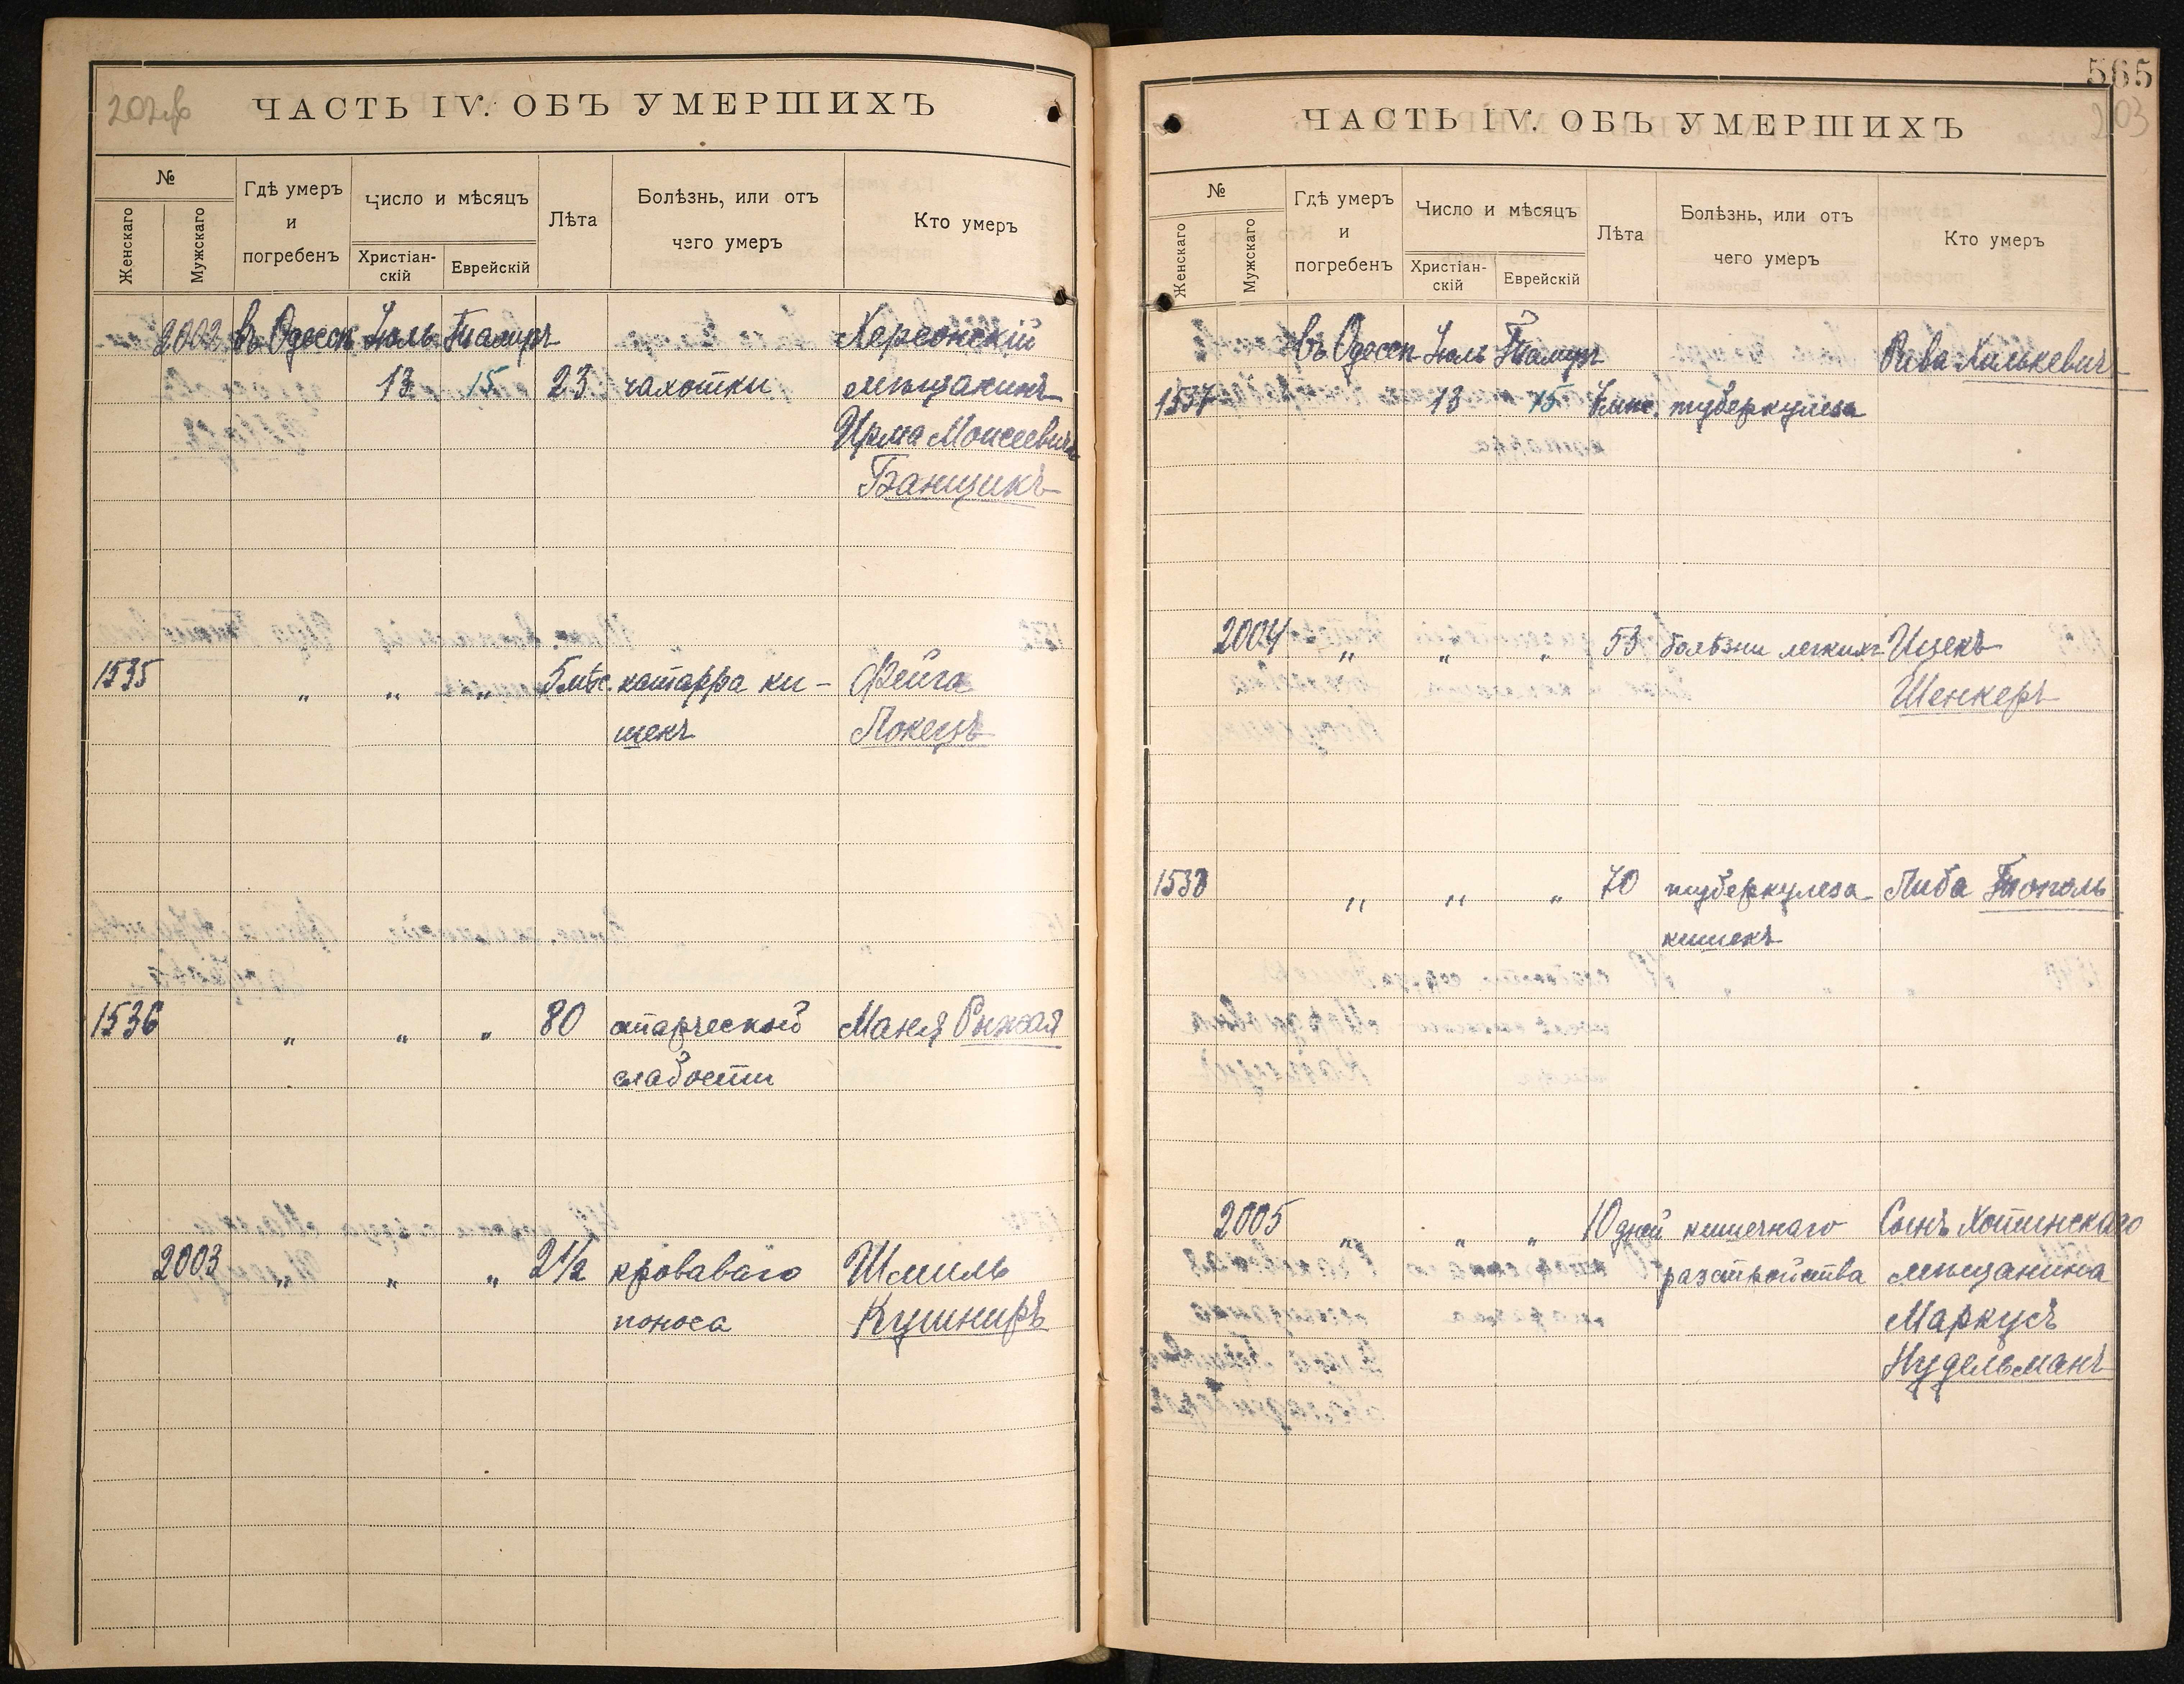 202об
ЧАСТЬ IV. ОБЪ УМЕРШИХЪ
№
Женскаго
Мужскаго
Гдѣ умеръ
и
погребенъ
Число и мѣсяцъ
Христіан-
скій
Еврейскій
Лѣта
Болѣзнь, или отъ
чего умеръ
Кто умеръ
2002 въ Одессѣ Іюль Тамузъ Херсонскій
13 15 23 чахотки мѣщанинъ
Моисеевичъ
Банщикъ
1535 „ „ „ 5 мѣс. катарра ки- Фейга
шекъ Локецъ
1536 „ „ „ 80 старческой Маня Рыжая
слабости
2003 „ „ „ 2 1/2 кроваваго Шмиль
поноса Кушниръ
565
203
ЧАСТЬ IV. ОБЪ УМЕРШИХЪ
№
Женскаго
Мужскаго
Гдѣ умеръ
и
погребенъ
Число и мѣсяцъ
Христіан-
скій
Еврейскій
Лѣта
Болѣзнь, или отъ
чего умеръ
Кто умеръ
въ Одессѣ Іюль Тамузъ Рива Халькевичъ
1537 13 15 туберкулеза
2004 „ „ „ 53 болѣзни легкихъ Ицекъ
Шенкеръ
1538 „ „ „ 70 туберкулеза Либа Тополь
кишекъ
2005 „ „ „ 10 дней кишечнаго Сынъ Хотинскаго
разстройства мѣщанина
Маркусъ
Нудельманъ